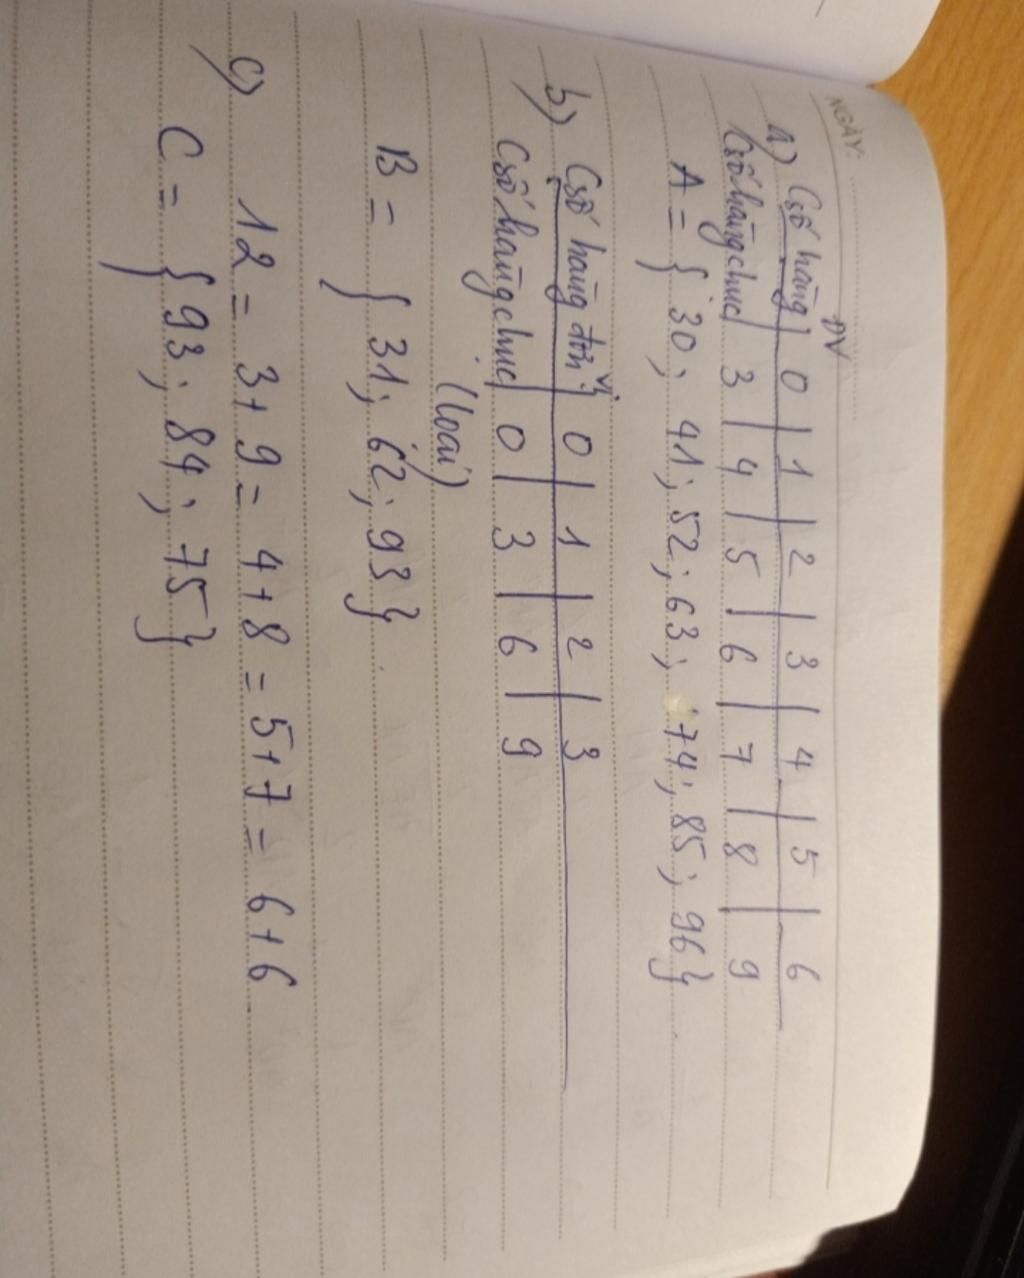 NGÀY:
ĐV
a) Csố hàng | 0 | 1 | 2 | 3 | 4 | 5 | 6
Csố hàng chục | 3 | 4 | 5 | 6 | 7 | 8 | 9
A = { 30; 41; 52; 63; 74; 85; 96}
b) Csố hàng đơn vị | 0 | 1 | 2 | 3
Csố hàng chục | 0 | 3 | 6 | 9
(loại)
B = { 31; 62; 93}.
c) 12 = 3+9 = 4+8 = 5+7 = 6+6
C = {93; 84; 75}